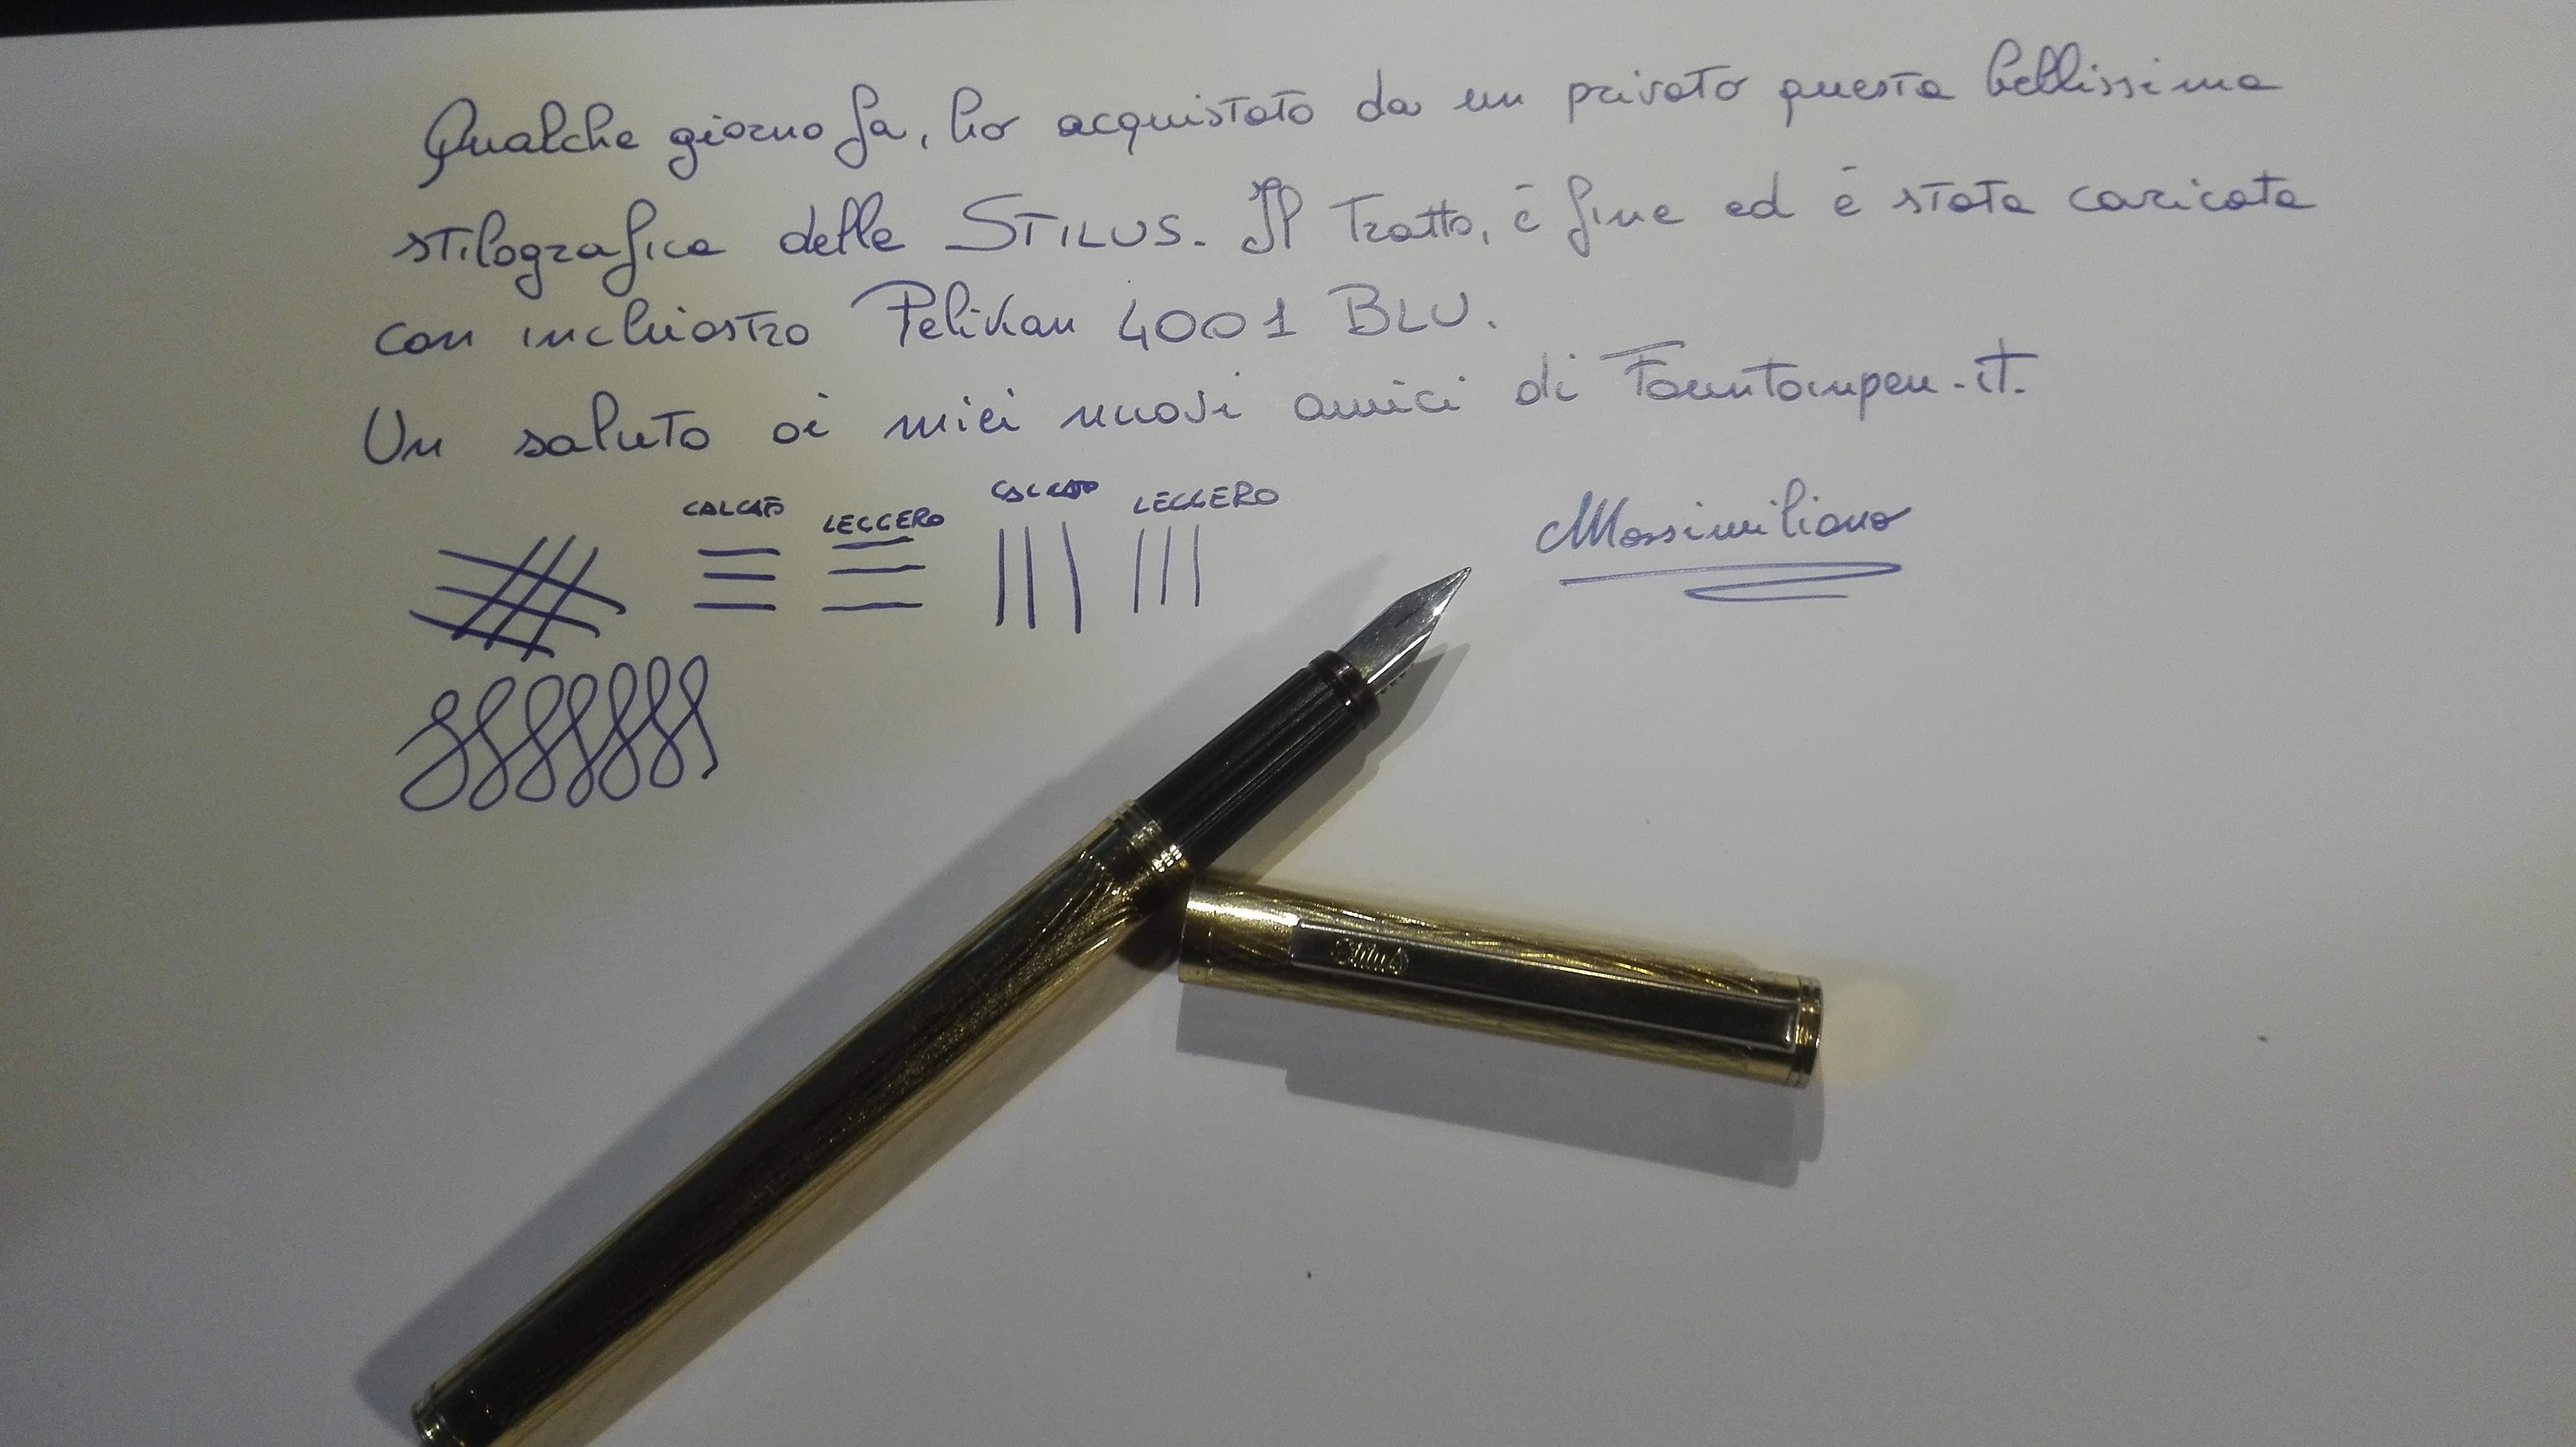 Qualche giorno fa, ho acquistato da un privato questa bellissima
stilografica della STILUS. Il Tratto, è fine ed è stata caricata
con inchiostro Pelikan 4001 BLU.
Un saluto ai miei nuovi amici di Fountainpen.it.
CALCATO LEGGERO CALCATO LEGGERO
Massimiliano
Stilus